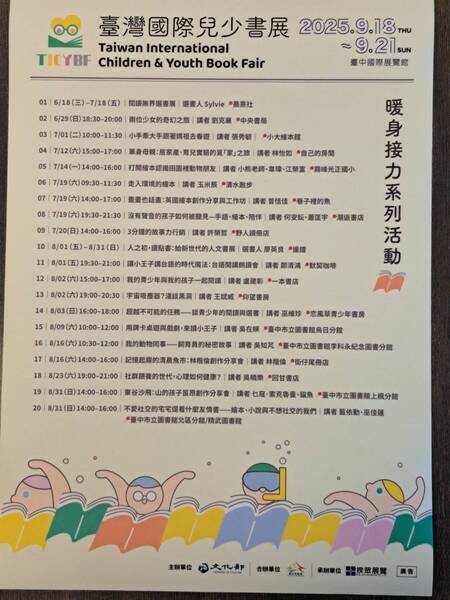 TICYBF
臺灣國際兒少書展
Taiwan International
Children & Youth Book Fair
2025.9.18 THU
~9.21 SUN
臺中國際展覽館
暖身接力系列活動
01｜6/18(三)–7/18(五)｜閱讀無界選書展｜選書人 Sylvie 晨熹社
02｜6/29(日)18:30–20:00｜兩位少女的奇幻之旅｜講者 劉克襄 中央書局
03｜7/01(二)10:00–11:30｜小手牽大手跟著媽祖去春遊｜講者 張秀毓｜小大繪本館
04｜7/12(六)15:00–17:00｜單身母親:居家產、育兒實驗的覓「家」之旅｜講者 林怡如 自己的房間
05｜7/14(一)14:00–16:00｜打開繪本認識田園裡動物朋友｜講者 小熊老師、韋瓊、江榮富 霧峰光正國小
06｜7/19(六)09:30–11:30｜走入環境的繪本｜講者 玉米辰 清水散步
07｜7/19(六)15:00–17:00｜畫畫也話畫:英國繪本創作分享與工作坊｜講者 曾恬佳 巷子裡的魚
08｜7/19(六)19:30–21:30｜沒有聲音的孩子如何被聽見—手語、繪本、陪伴｜講者 何安妘、蕭匡宇 潮遊書店
09｜7/20(日)14:00–16:00｜3分鐘的故事力行銷｜講者 許榮哲 野人讀冊店
10｜8/01(五)–8/31(日)｜人之初・讀點書:給新世代的人文書展｜選書人 廖英良 邊譜
11｜8/01(五)19:30–21:00｜讓小王子講台語的時代魔法:台語閱讀朗讀會｜講者 鄭清鴻 默契咖啡
12｜8/02(六)15:00–17:00｜我的青少年與我的孩子一起閱讀｜講者 盧建彰 一本書店
13｜8/02(六)19:00–20:30｜宇宙吸塵器?淺談黑洞｜講者 王斌威 仰望書房
14｜8/03(日)16:00–18:00｜超越不可能的任務——談青少年的閱讀與選書｜講者 巫維珍 恋風草青少年書房
15｜8/09(六)10:00–12:00｜用牌卡桌遊與戲劇,來讀小王子｜講者 吳在媖 臺中市立圖書館烏日分館
16｜8/16(六)10:30–12:00｜我的動物同事——飼育員的秘密故事｜講者 吳知芃 臺中市立圖書館李科永紀念圖書分館
17｜8/16(六)14:00–16:00｜記憶起霧的清晨魚市:林楷倫創作分享會｜講者 林楷倫 街仔尾冊店
18｜8/23(六)19:00–21:00｜社群餵養的世代,心理如何健康?｜講者 吳曉樂 回甘書店
19｜8/31(日)14:00–16:00｜東谷沙飛:山的孩子笛昂創作分享會｜講者 乜寇・索克魯曼、貓魚 臺中市立圖書館上楓分館
20｜8/31(日)14:00–16:00｜不愛社交的宅宅還看什麼友情書——繪本、小說與不想社交的我們｜講者 藍依勤、巫佳蓮
臺中市立圖書館北區分館/精武圖書館
主辦單位 文化部 合辦單位 承辦單位 揆眾展覽 廣告